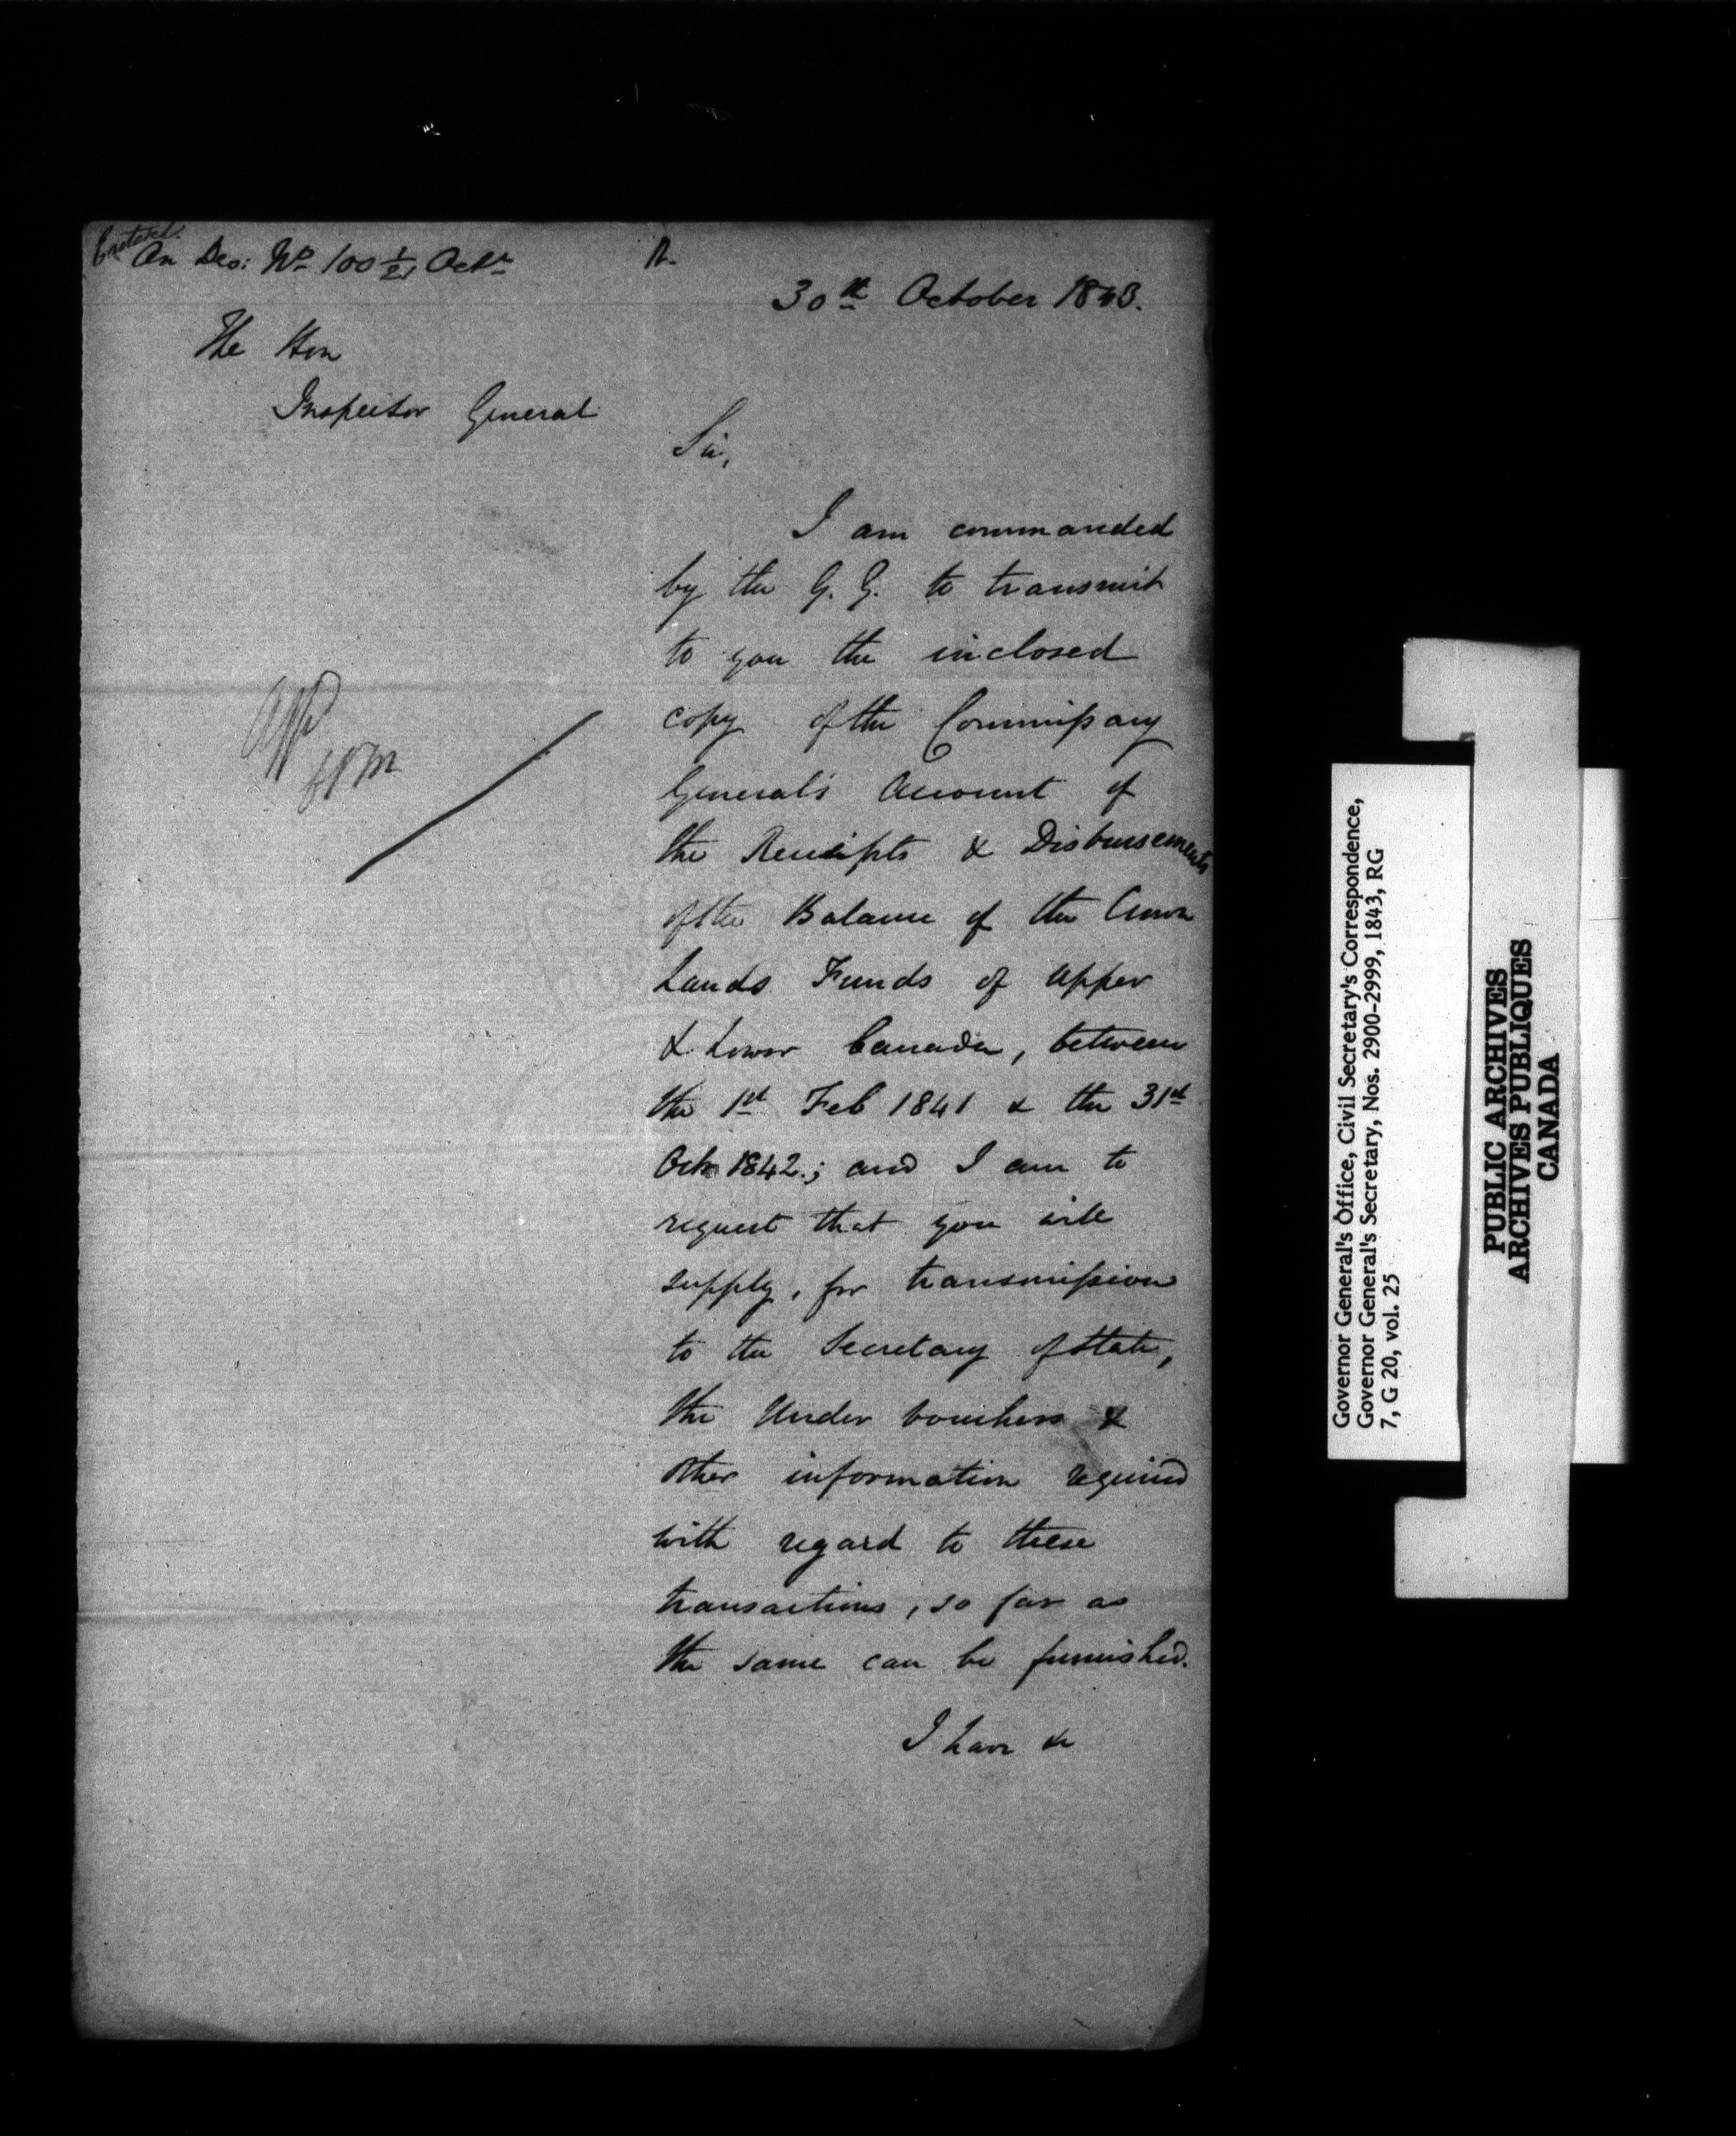 Entered.
On Des: No 100 1/21 Octr
R.
30th October 1843.
The Hon
Inspector General
Sir,
I am commanded
by the G. G. to transmit
to you the inclosed
copy of the Commissary
General's Account of
the Receipts & Disbursements
of the Balance of the Crown
Lands Funds of Upper
& Lower Canada, between
the 1st Feb 1841 & the 31st
Octr 1842.; and I am to
request that you will
supply, for transmission
to the Secretary of State,
the Under vouchers &
other information required
with regard to these
transactions, so far as
the same can be furnished.
I have &c
Governor General's Office, Civil Secretary's Correspondence,
Governor General's Secretary, Nos. 2900-2999, 1843, RG
7, G 20, vol. 25
PUBLIC ARCHIVES
ARCHIVES PUBLIQUES
CANADA